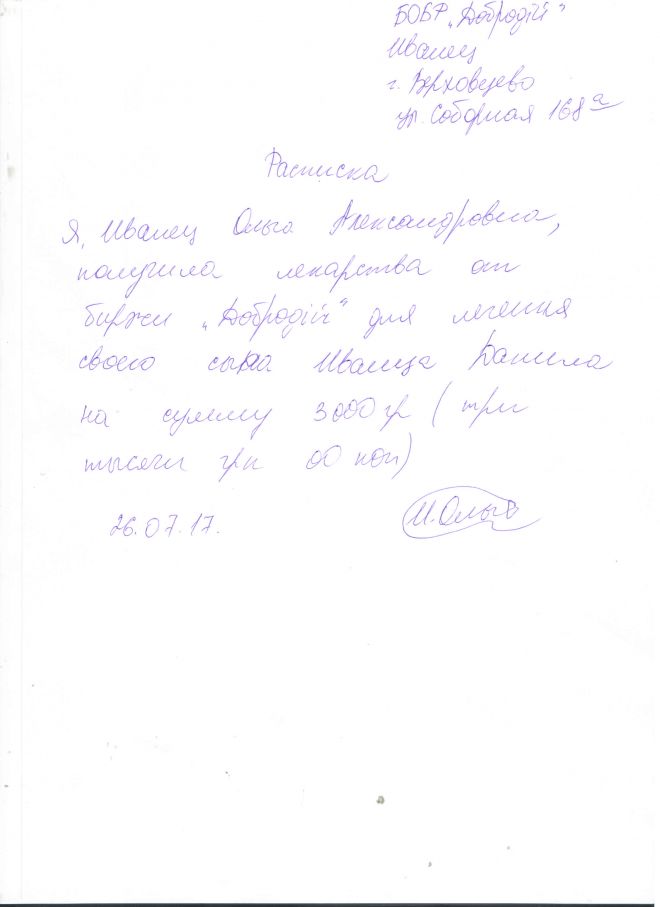 БОБР „Добродій"
Иванец
г. Верховцево
ул. Соборная 168 а
Расписка
Я, Иванец Ольга Александровна,
получила лекарства от
биржи „Добродій" для лечения
своего сына Иванца Данила
на сумму 3000 гр (три
тысячи грн 00 коп)
26.07.17.
И.Ольга